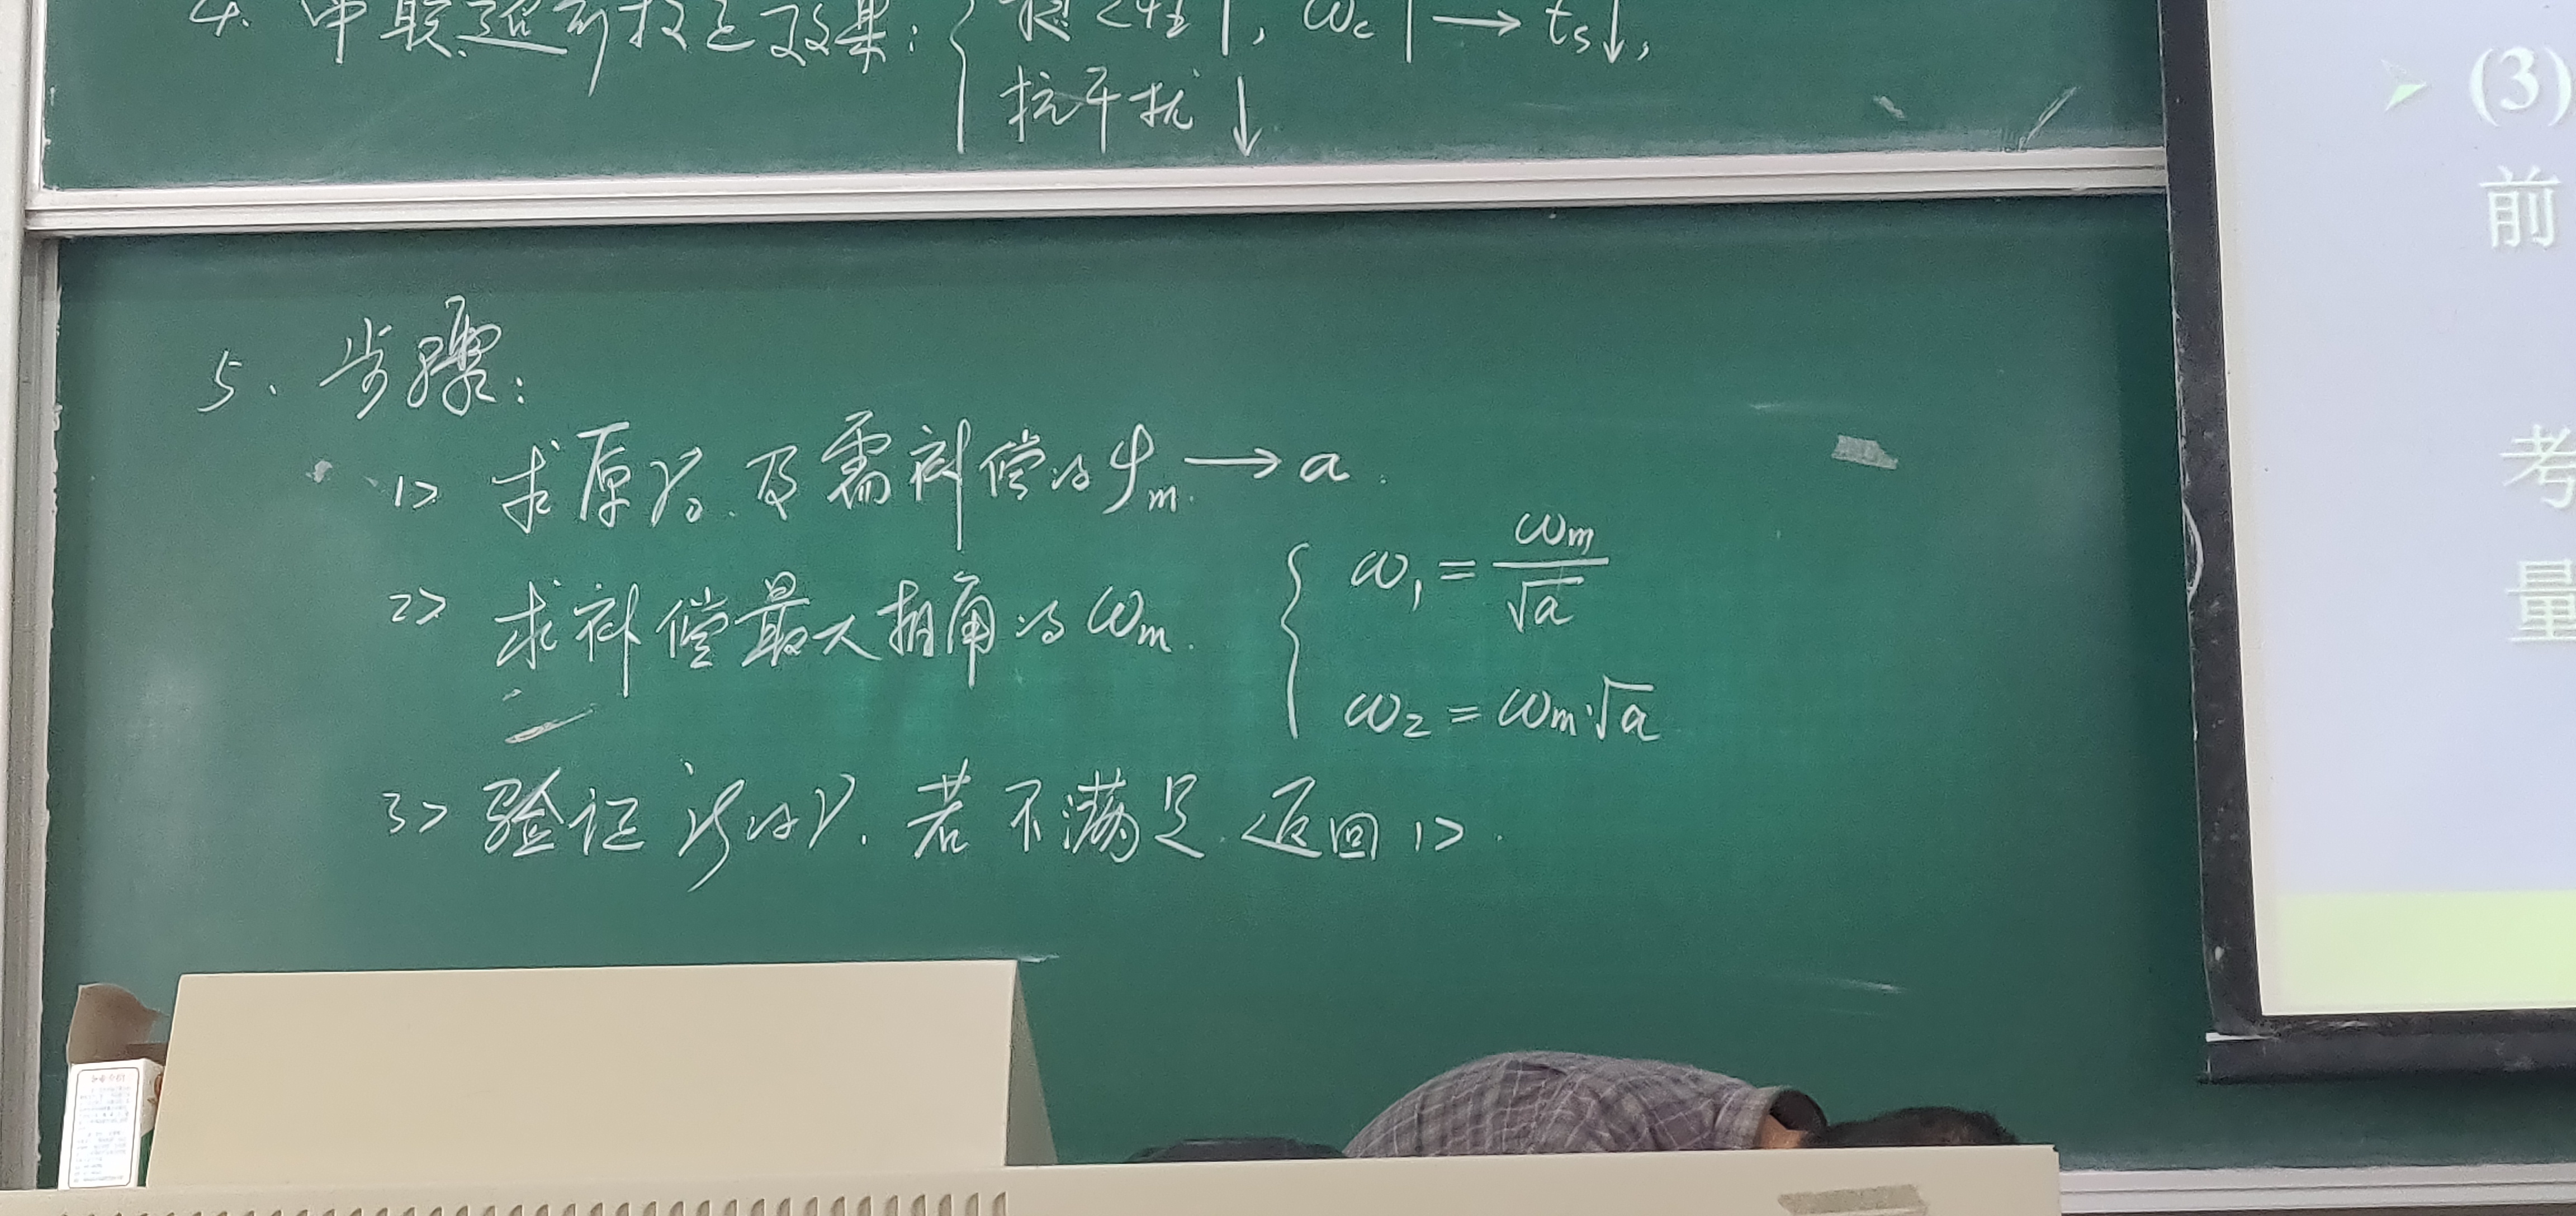 4. 串联超前校正效果: { 稳定性↑, ωc↑ → ts↓,
抗干扰 ↓
5. 步骤:
1> 求原γ0. 及需补偿的φm → a.
2> 求补偿最大相角的ωm. { ω1 = ωm/√a
ω2 = ωm·√a
3> 验证 的γ. 若不满足 返回1>.
(3)
前
考
量